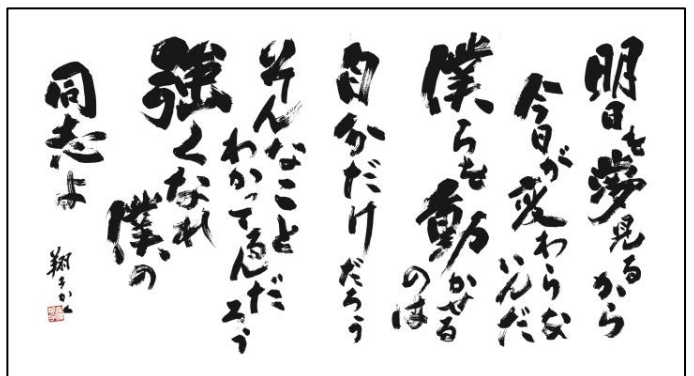 明日を夢見るから
今日が変わらな
いんだ
僕らを動かせる
のは
自分だけだろう
そんなこと
わかってるんだ
エゥ
強くなれ
僕の
同志よ
翔子かく